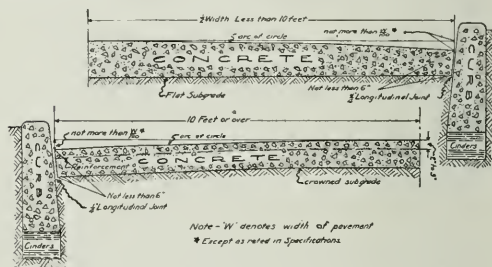 ½ Width Less than 10 feet
arc of circle
not more than W/100 *
CONCRETE
CURB
Not less than 6"
Flat Subgrade
Longitudinal Joint
Cinders
10 Feet or over
not more than W/100 *
arc of circle
CURB
Reinforcement
CONCRETE
Not less than 6"
Longitudinal Joint
crowned subgrade
Cinders
Note - 'W' denotes width of pavement
* Except as noted in Specifications